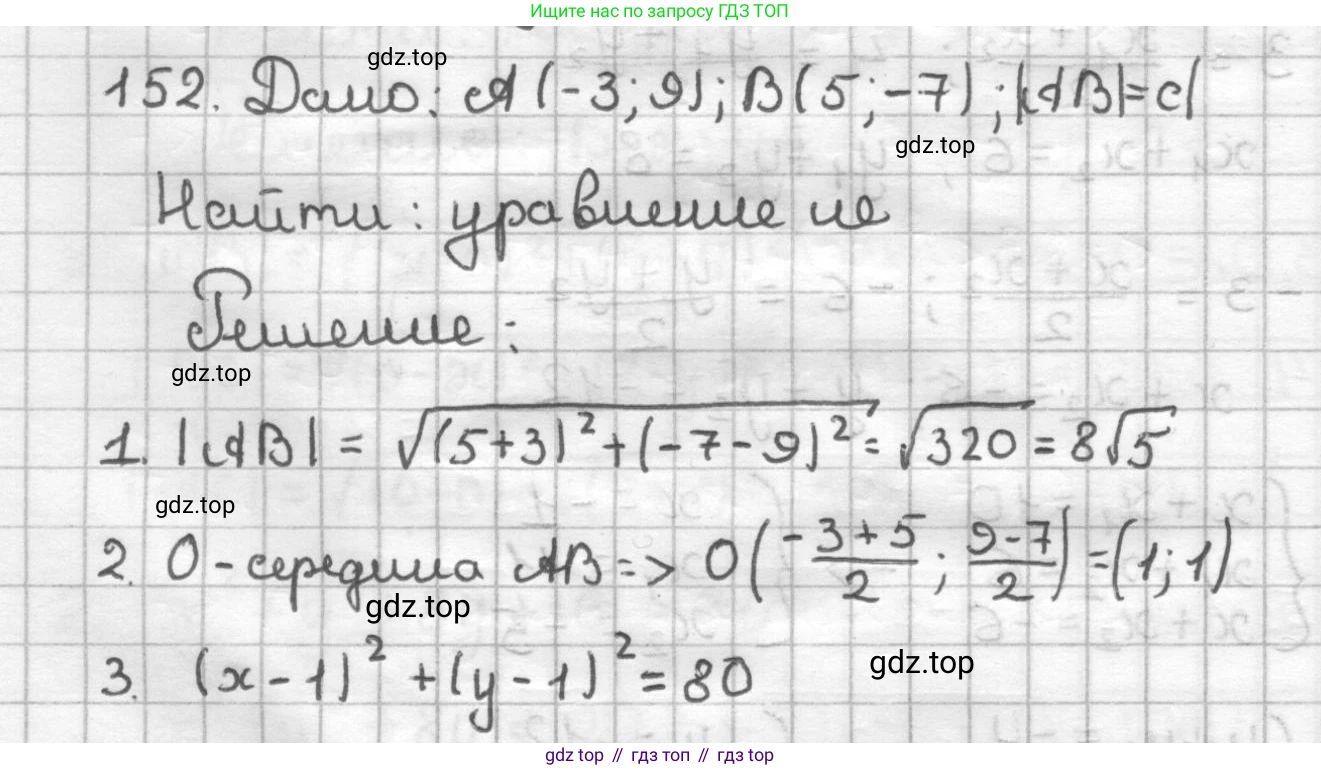 Ищите нас по запросу ГДЗ ТОП
gdz.top
152. Дано: A(-3; 9); B(5; -7); |AB|=d
gdz.top
Найти: уравнение
Решение:
gdz.top
1. |AB| = √((5+3)²+(-7-9)²) = √320 = 8√5
gdz.top
2. O - середина AB => O((-3+5)/2; (9-7)/2) = (1; 1)
gdz.top
3. (x-1)² + (y-1)² = 80
gdz.top
gdz top // гдз топ // gdz top